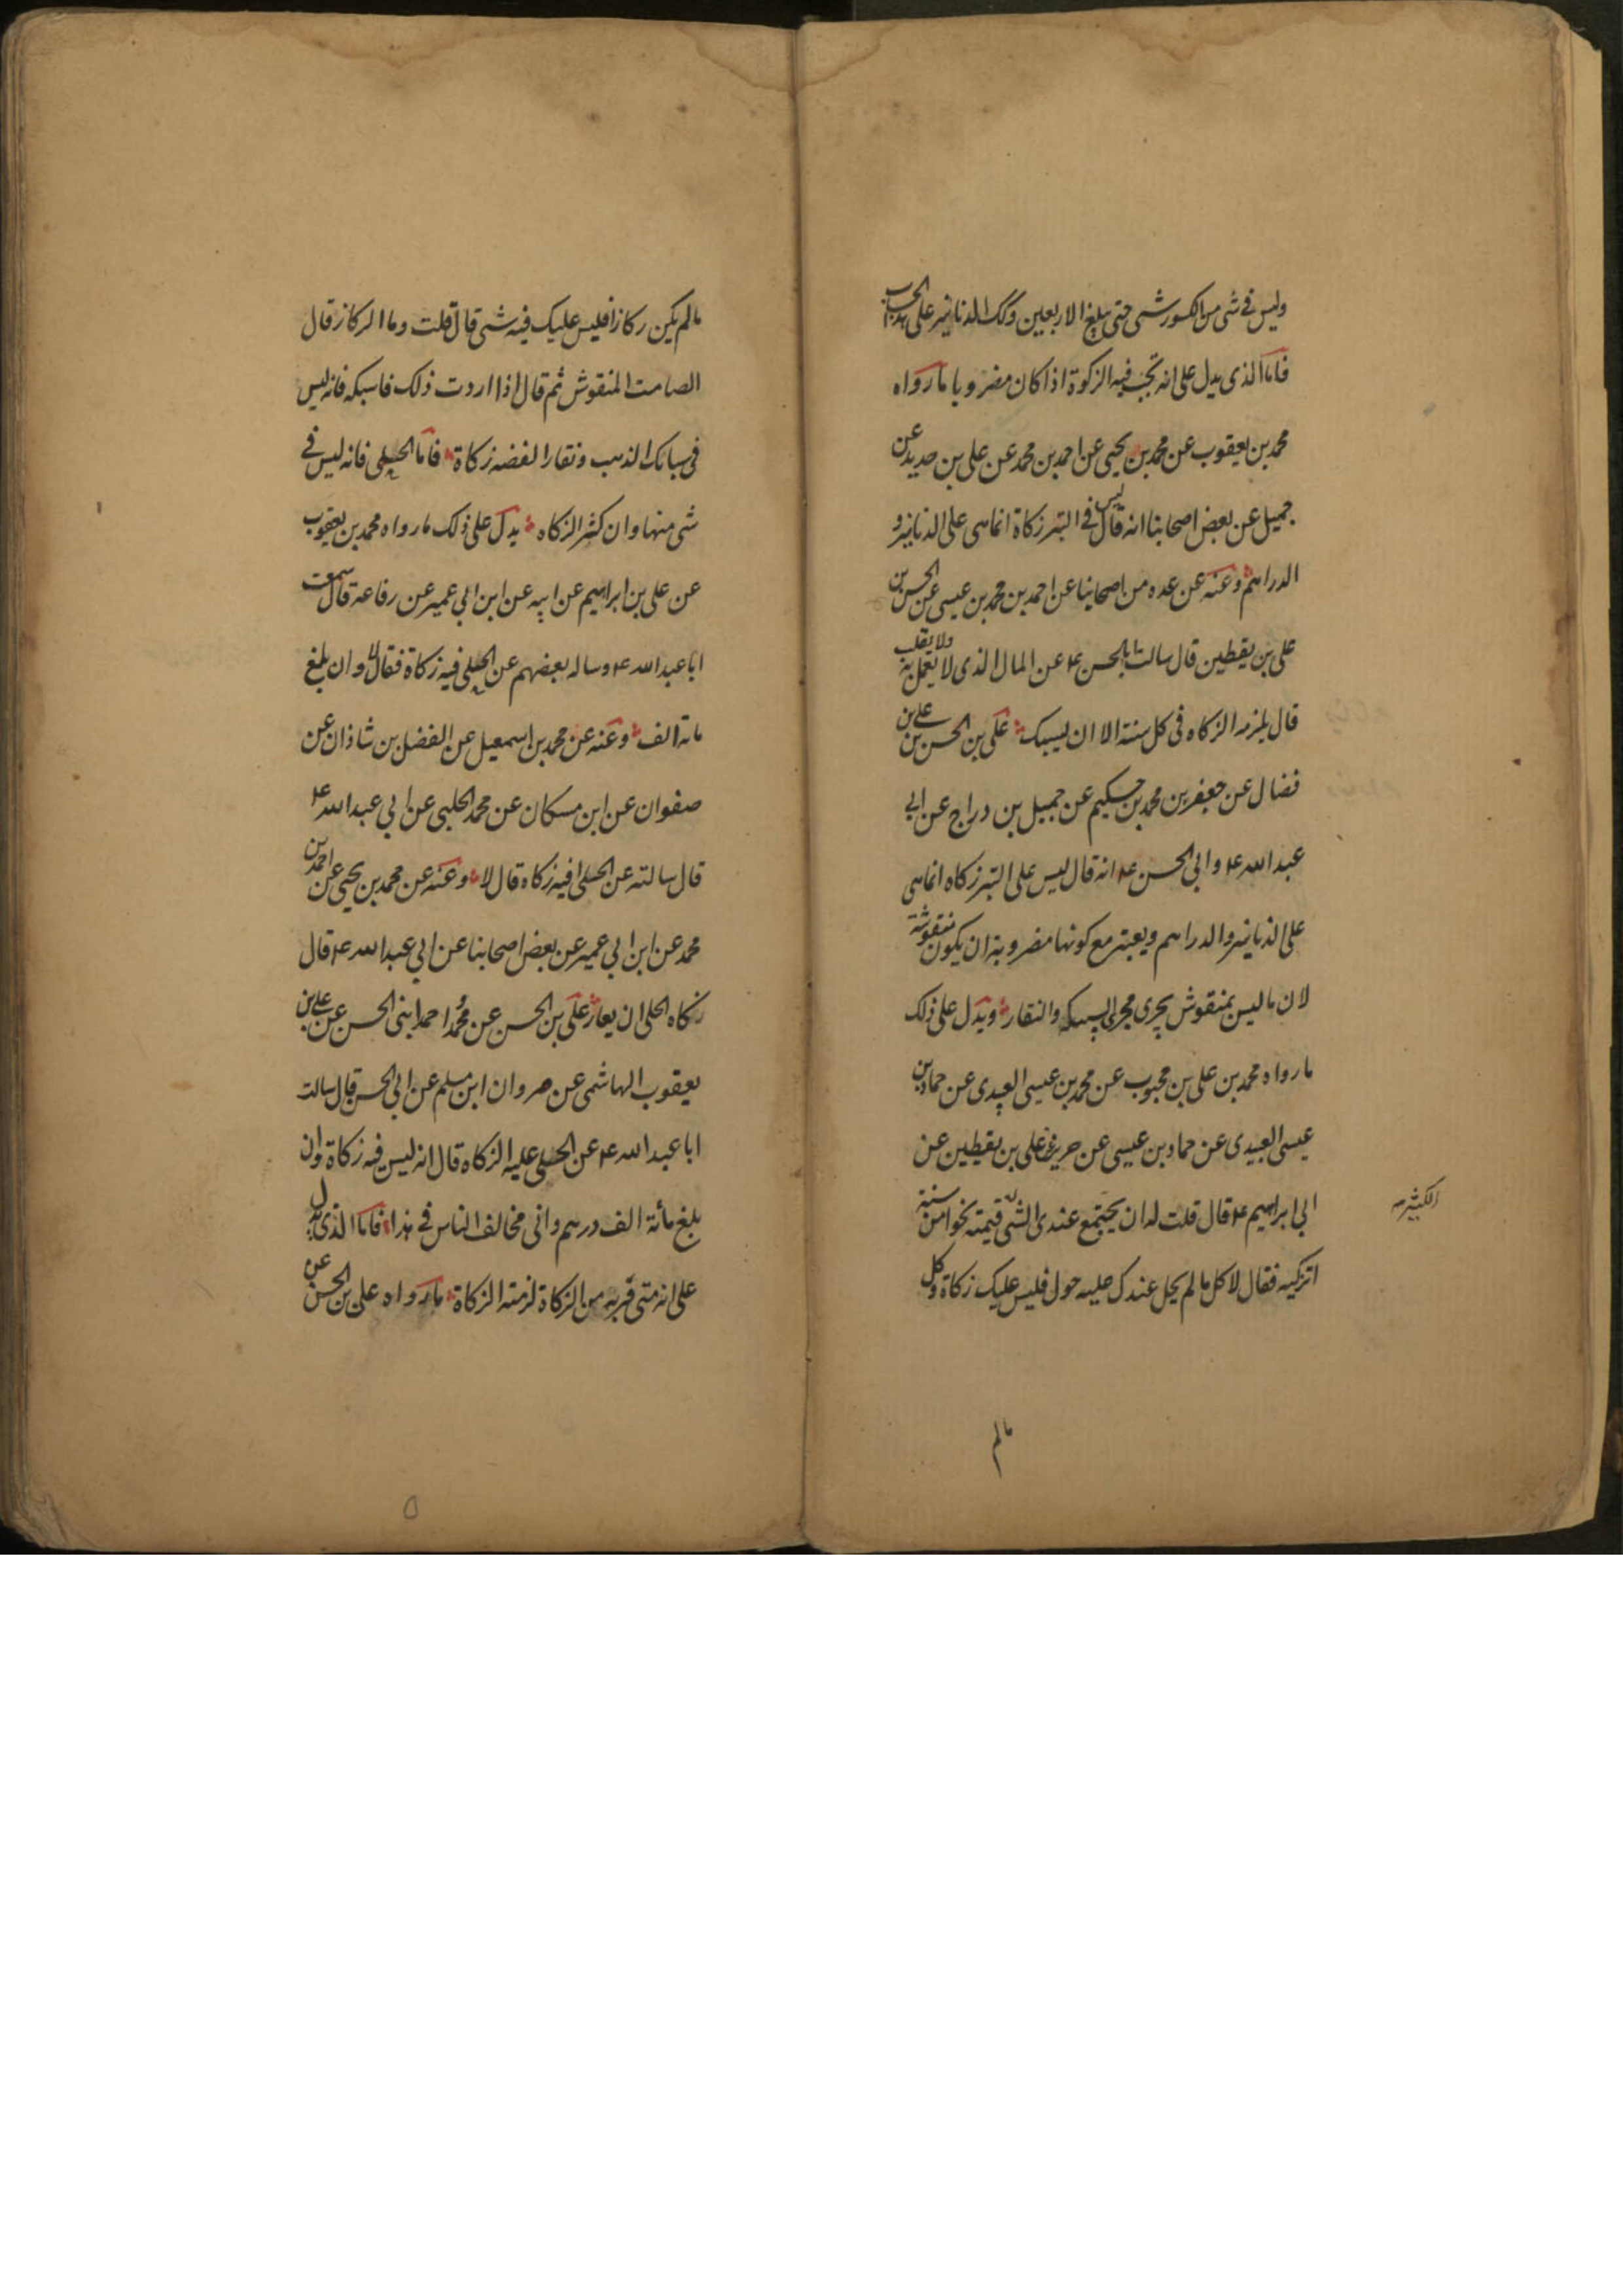 وليس في شى من الكسور شى حتى يبلغ الاربعين وكك الدنانير على هذا الحساب
فاما الذى يدل على انه تجب فيه الزكوة اذا كان مضروبا ما رواه
محمد بن يعقوب عن محمد بن يحيى عن احمد بن محمد عن على بن حديد عن
جميل عن بعض اصحابنا انه قال ليس في التبر زكاة انما هى على الدنانير و
الدراهم وعنه عن عده من اصحابنا عن احمد بن محمد بن عيسى عن الحسن بن
على بن يقطين قال سالت ابا الحسن ع عن المال الذى لا يعمل به ولا يقلب
قال يلزمه الزكاه فى كل سنة الا ان يسبك على بن الحسن بن على بن
فضال عن جعفر بن محمد بن حكيم عن جميل بن دراج عن ابي
عبد الله ع وابي الحسن ع انه قال ليس على التبر زكاه انما هى
على الدنانير والدراهم ويعتبر مع كونها مضروبة ان يكون منقوشة
لان ما ليس بمنقوش يجرى مجرى السبيكه والنقار ويدل على ذلك
ما رواه محمد بن على بن محبوب عن محمد بن عيسى العبيدى عن حماد بن
عيسى العبيدى عن حماد بن عيسى عن حريز عن على بن يقطين عن
ابي ابراهيم ع قال قلت له ان يجتمع عندى الشى قيمته نحوا من سنة
الكثير
اتزكيه فقال لا كل ما لم يحل عندك عليه حول فليس عليك زكاة وكل
مالم
مالم يكن ركازا فليس عليك فيه شى قال قلت وما الركاز قال
الصامت المنقوش ثم قال اذا اردت ذلك فاسبكه فانه ليس
فى سبائك الذهب ونقار الفضه زكاة فاما الحلى فانه ليس في
شى منها وان كثر الزكاه يدل على ذلك ما رواه محمد بن يعقوب
عن على بن ابراهيم عن ابيه عن ابن ابي عمير عن رفاعة قال سمعت
ابا عبد الله ع وساله بعضهم عن الحلى فيه زكاة فقال لا وان بلغ
مائة الف وعنه عن محمد بن اسمعيل عن الفضل بن شاذان عن
صفوان عن ابن مسكان عن محمد الحلبي عن ابي عبد الله ع
قال سالته عن الحلى افيه زكاه قال لا وعنه عن محمد بن يحيى عن احمد بن
محمد عن ابن ابي عمير عن بعض اصحابنا عن ابي عبد الله ع قال
زكاه الحلى ان يعار على بن الحسن عن محمد و احمد ابنى الحسن عن على بن
يعقوب الهاشمى عن مروان ابن مسلم عن ابي الحسن قال سالت
ابا عبد الله ع عن الحلى عليه الزكاه قال انه ليس فيه زكاة وان
بلغ مأئة الف درهم وانى مخالف الناس في هذا فاما الذى يدل
على انه متى فر به من الزكاة لزمته الزكاة ما رواه على بن الحسن عن